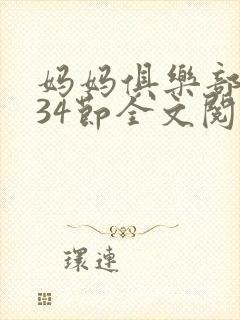 妈妈俱樂部
34節全文閱
環連